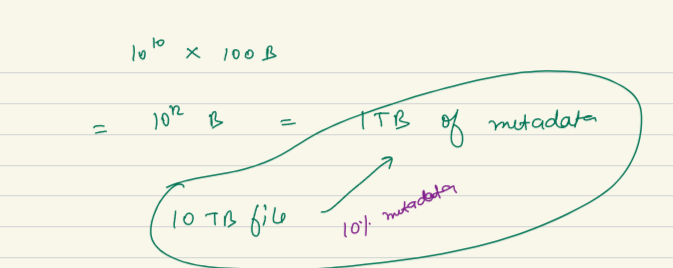 10^10 × 100 B
= 10^12 B = 1 TB of metadata
10 TB file
10% metadata